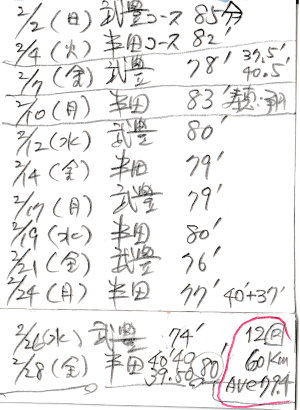 2/2 (日) 武豊コース 85分
2/4 (火) 半田コース 82'
2/7 (金) 武豊 78' 37.5' 40.5'
2/10 (月) 半田 83'
2/12 (水) 武豊 80'
2/14 (金) 半田 79'
2/17 (月) 武豊 79'
2/19 (水) 半田 80'
2/21 (金) 武豊 76'
2/24 (月) 半田 77' 40'+37'
2/26 (水) 武豊 74' 12回
2/28 (金) 半田 40'40 39.50 80' 60Km
Ave 79.4